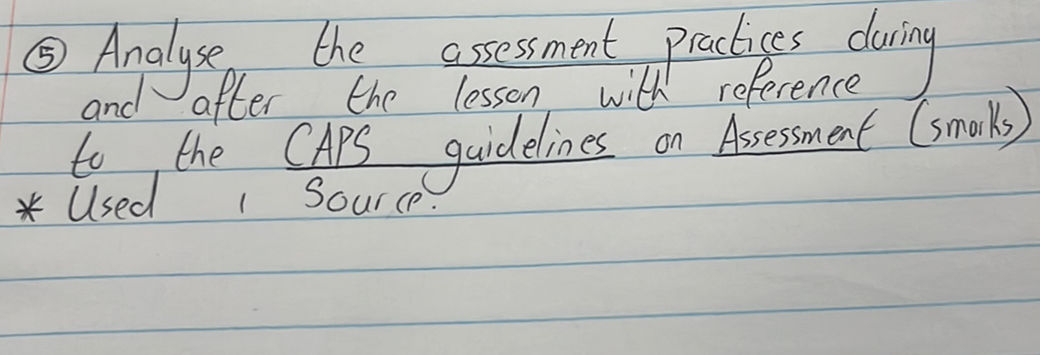 ⑤ Analyse the assessment practices during
and after the lesson with reference
to the CAPS guidelines on Assessment (5marks)
* Used 1 Source.